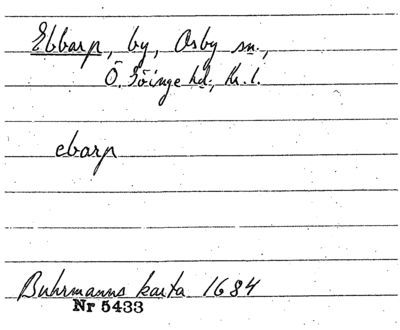 Ebbarp, by, Osby sn.,
Ö. Göinge hd., Kr. l.
ebarp
Buhrmanns karta 1684
Nr 5433